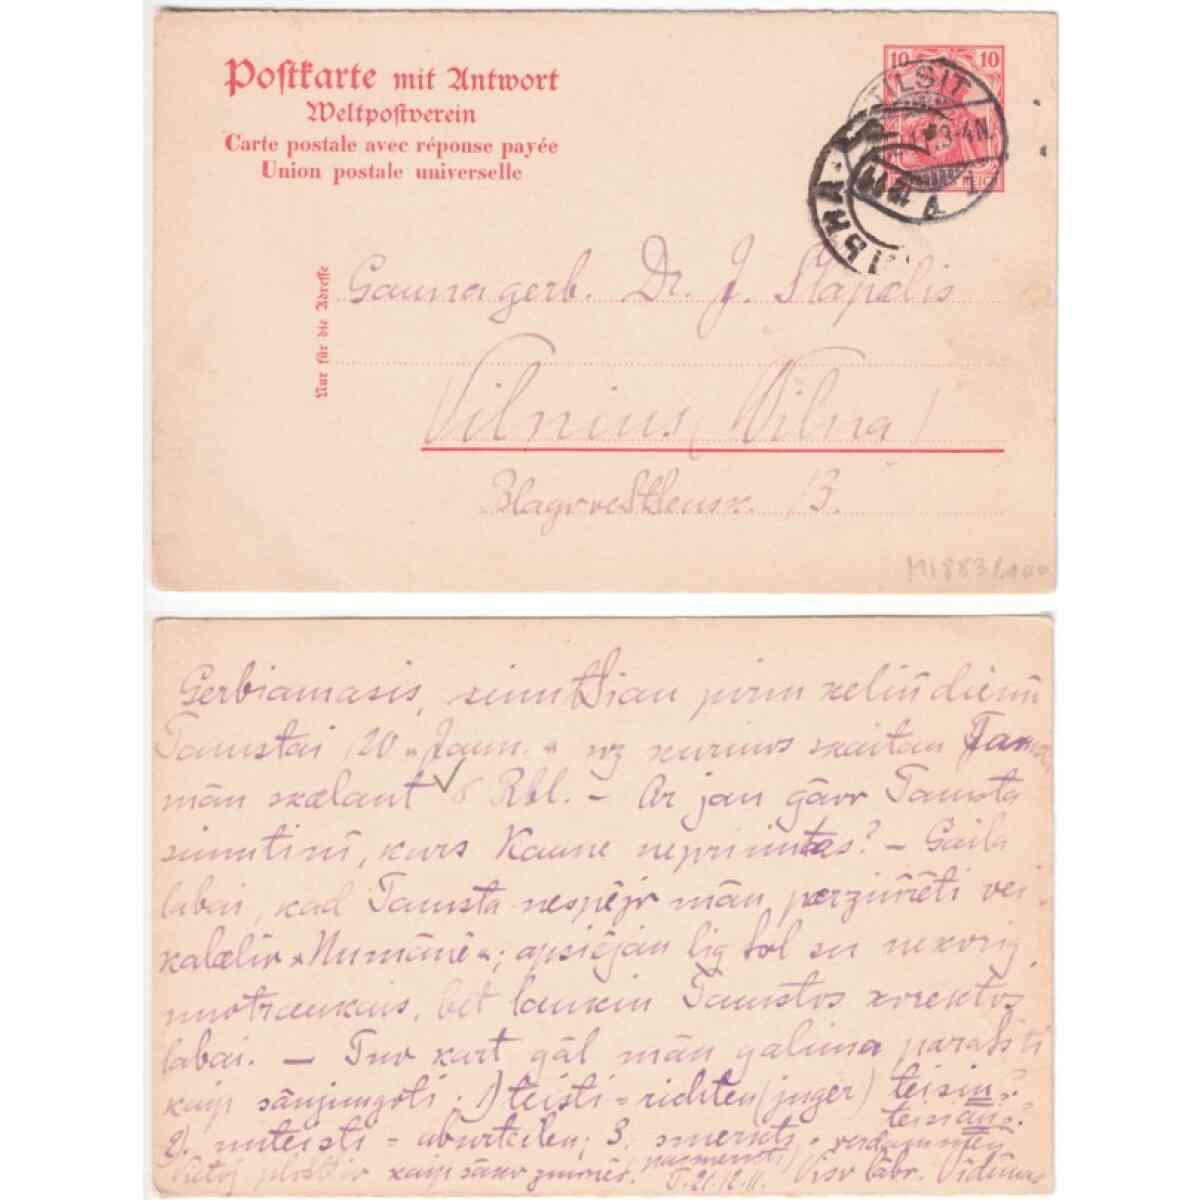 Postkarte mit Antwort
Weltpostverein
Carte postale avec réponse payée
Union postale universelle
10 10
TILSIT
Nur für die Adresse
Gaunagerb. Dr. J. Šlapelis
Vilnius (Wilna)
Blagoveščensk. 13.
Gerbiamasis, siunčian pirm kelių dienų
Tamstai 20 „Jaun." už kuriuos skaitau
mán skelant 8 Rbl. – Ar jau gávo Tamsta
siuntinį, kurs Kaune nepriimtas? – Gaila
labai, kad Tamsta nespėjo mán peržiūrėti vei-
kalėlio „Numánė"; apsiėján lig šol su nekorig.
nuotraukais, bet laukiu Tamstos korektos
labai. – Tuo kart gál mán galima parašyti
kaip sánjungoti: 1) teisti = richten (juger) teisiu?
teisáu?
2). nuteisti = aburteilen; 3. smerkti = verdammen
kaip sávo žmonės. (pasmerkti) T. 21.12.11. Visv lábr. Vidúnas